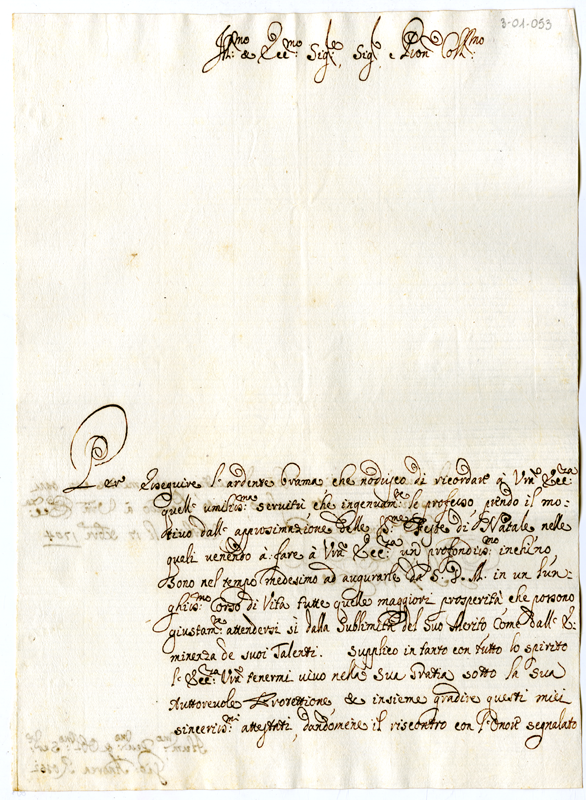 3-01-053
Ill:mo & Ecc:mo Sig:re Sig:re e Pron Coll:mo
Per eseguire l'ardente brama che nodrisco di ricordare à Vra Ecc:za
quell' umiliss:ma servitù che ingenuam:te le professo, prendo il mo-
tivo dall' approssimazione delle S:me Feste di Natale nelle
quali venendo à fare à Vra Ecc:za un profondiss:mo inchino,
sono nel tempo medesimo ad augurarle da S. D. M. in un lun-
ghiss:mo Corso di Vita tutte quelle maggiori prosperità che possono
giustam:te attendersi sì dalla Sublimità del Suo Merito Come dall' E-
minenza de suoi Talenti. Supplico in tanto con tutto lo spirito
l' Ecc:za Vra tenermi vivo nella Sua Gratia sotto la Sua
Auttorevole Protettione & insieme gradire questi miei
sinceriss:mi attestati, dandomene il riscontro con l'Onore segnalato